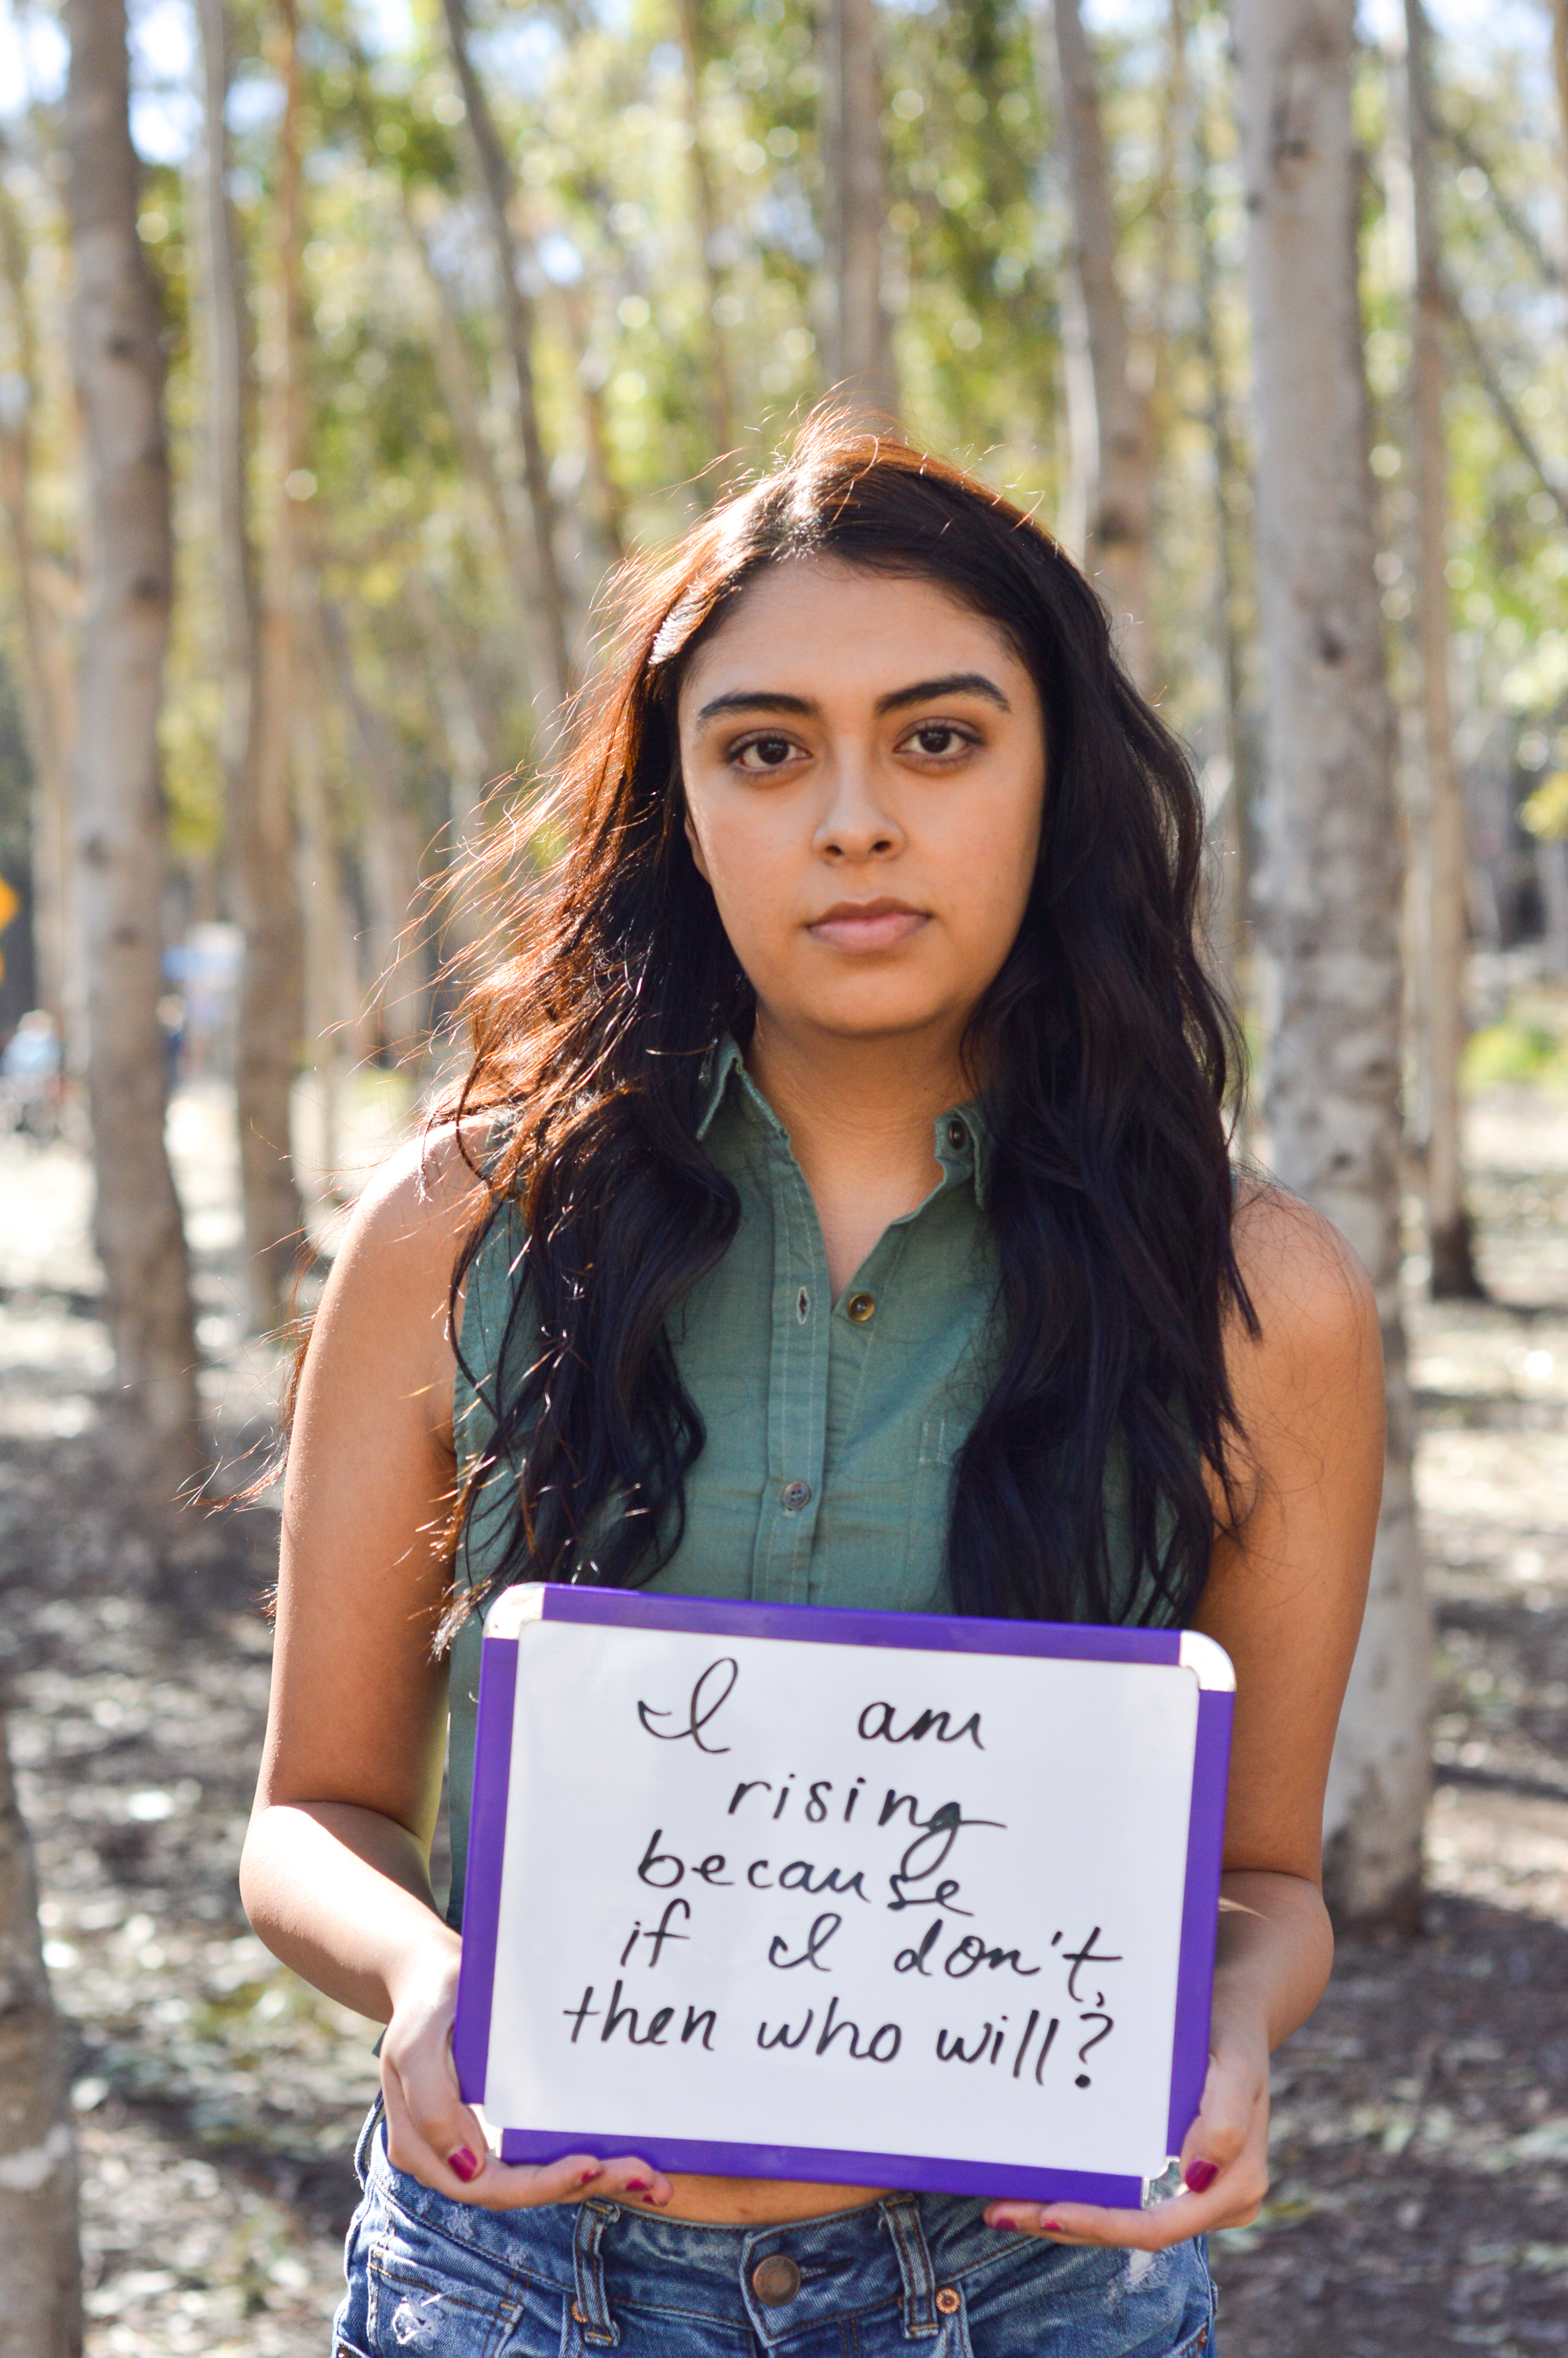 I am
rising
because
if I don't,
then who will?